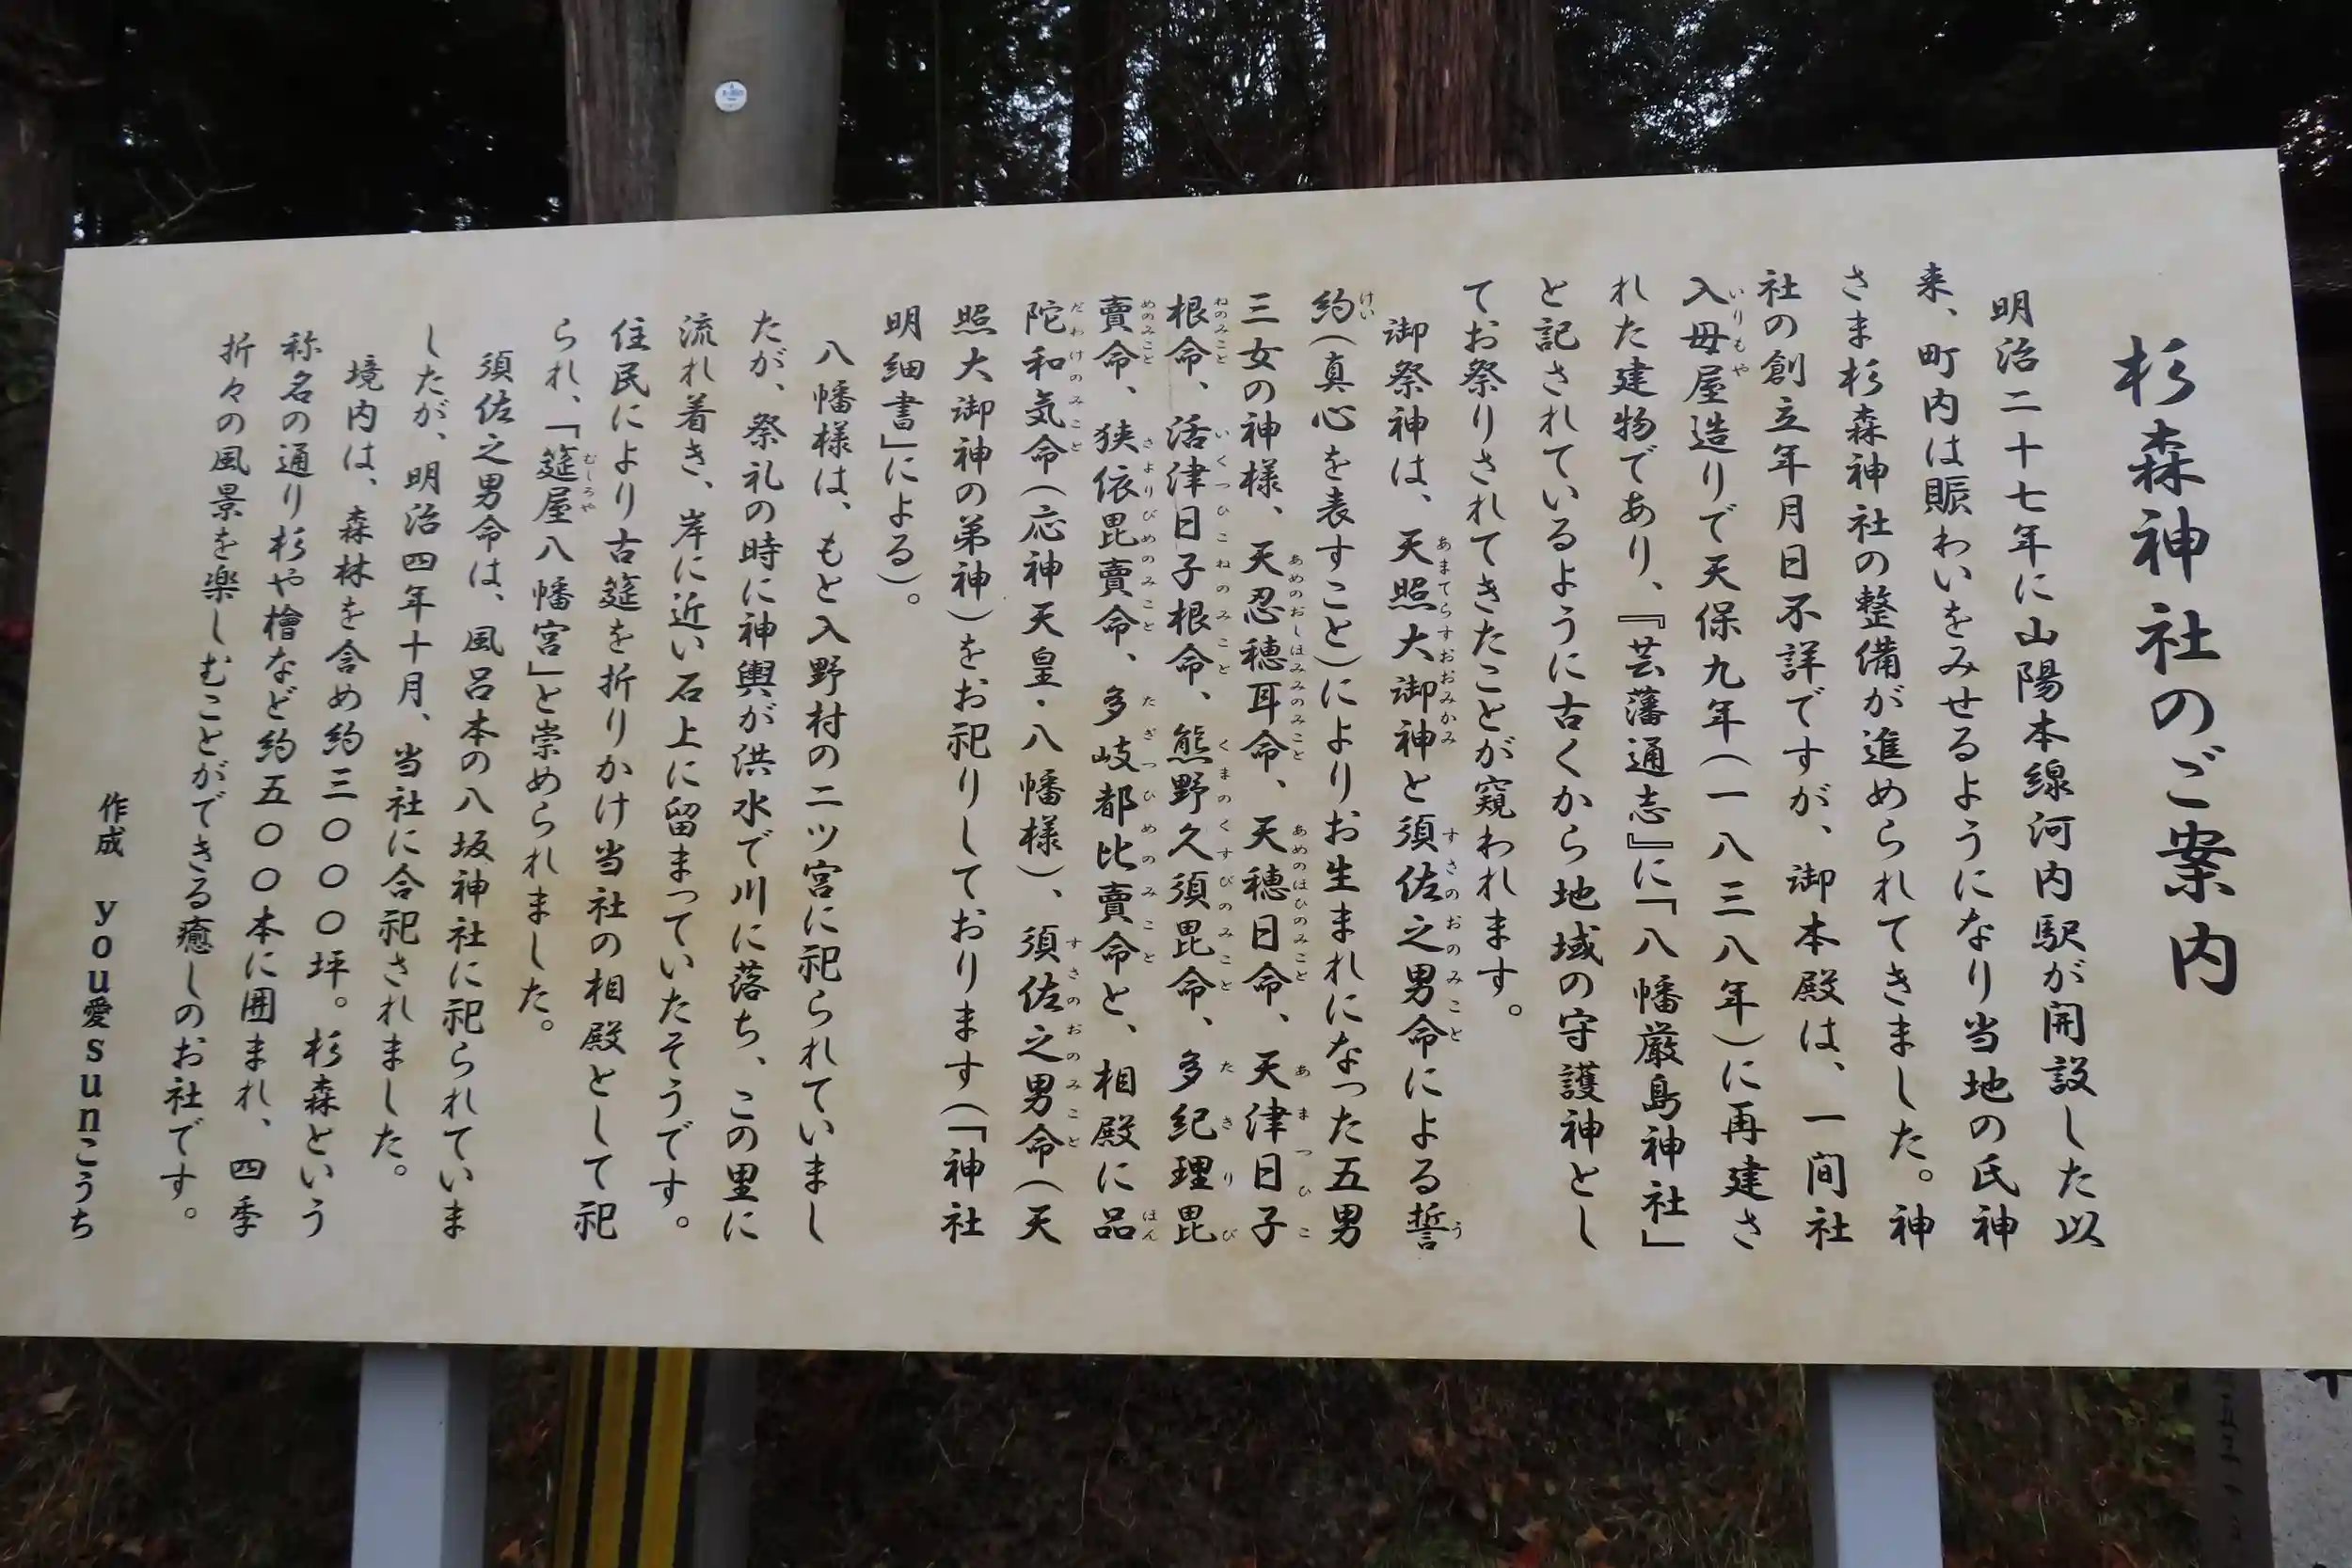 杉森神社のご案内
明治二十七年に山陽本線河内駅が開設した以
来、町内は賑わいをみせるようになり当地の氏神
さま杉森神社の整備が進められてきました。神
社の創立年月日不詳ですが、御本殿は、一間社
入母屋造りで天保九年(一八三八年)に再建さ
れた建物であり、『芸藩通志』に「八幡厳島神社」
と記されているように古くから地域の守護神とし
てお祭りされてきたことが窺われます。
御祭神は、天照大御神と須佐之男命による誓
約(真心を表すこと)によりお生まれになった五男
三女の神様、天忍穂耳命、天穂日命、天津日子
根命、活津日子根命、熊野久須毘命、多紀理毘
賣命、狭依毘賣命、多岐都比賣命と、相殿に品
陀和気命(応神天皇・八幡様)、須佐之男命(天
照大御神の弟神)をお祀りしております(「神社
明細書」による)。
八幡様は、もと入野村の二ツ宮に祀られていまし
たが、祭礼の時に神輿が洪水で川に落ち、この里に
流れ着き、岸に近い石上に留まっていたそうです。
住民により古筵を折りかけ当社の相殿として祀
られ、「筵屋八幡宮」と崇められました。
須佐之男命は、風呂本の八坂神社に祀られていま
したが、明治四年十月、当社に合祀されました。
境内は、森林を含め約三〇〇〇坪。杉森という
称名の通り杉や檜など約五〇〇本に囲まれ、四季
折々の風景を楽しむことができる癒しのお社です。
作成 you愛sunこうち